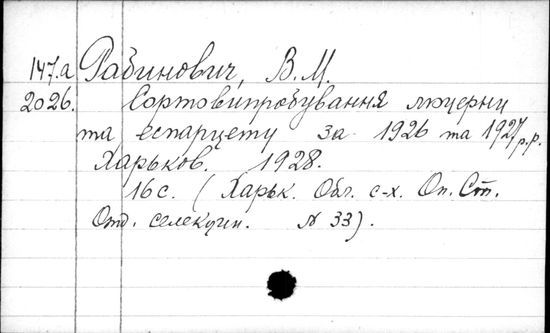 147.а Рабинович, В.М.
2026. Сортовипробування люцерни
та еспарцету за 1926 та 1927 р.р.
Харьков. 1928.
16 с. (Харьк. Обл. с-х. Оп. Ст.
Отд. селекции. № 33).